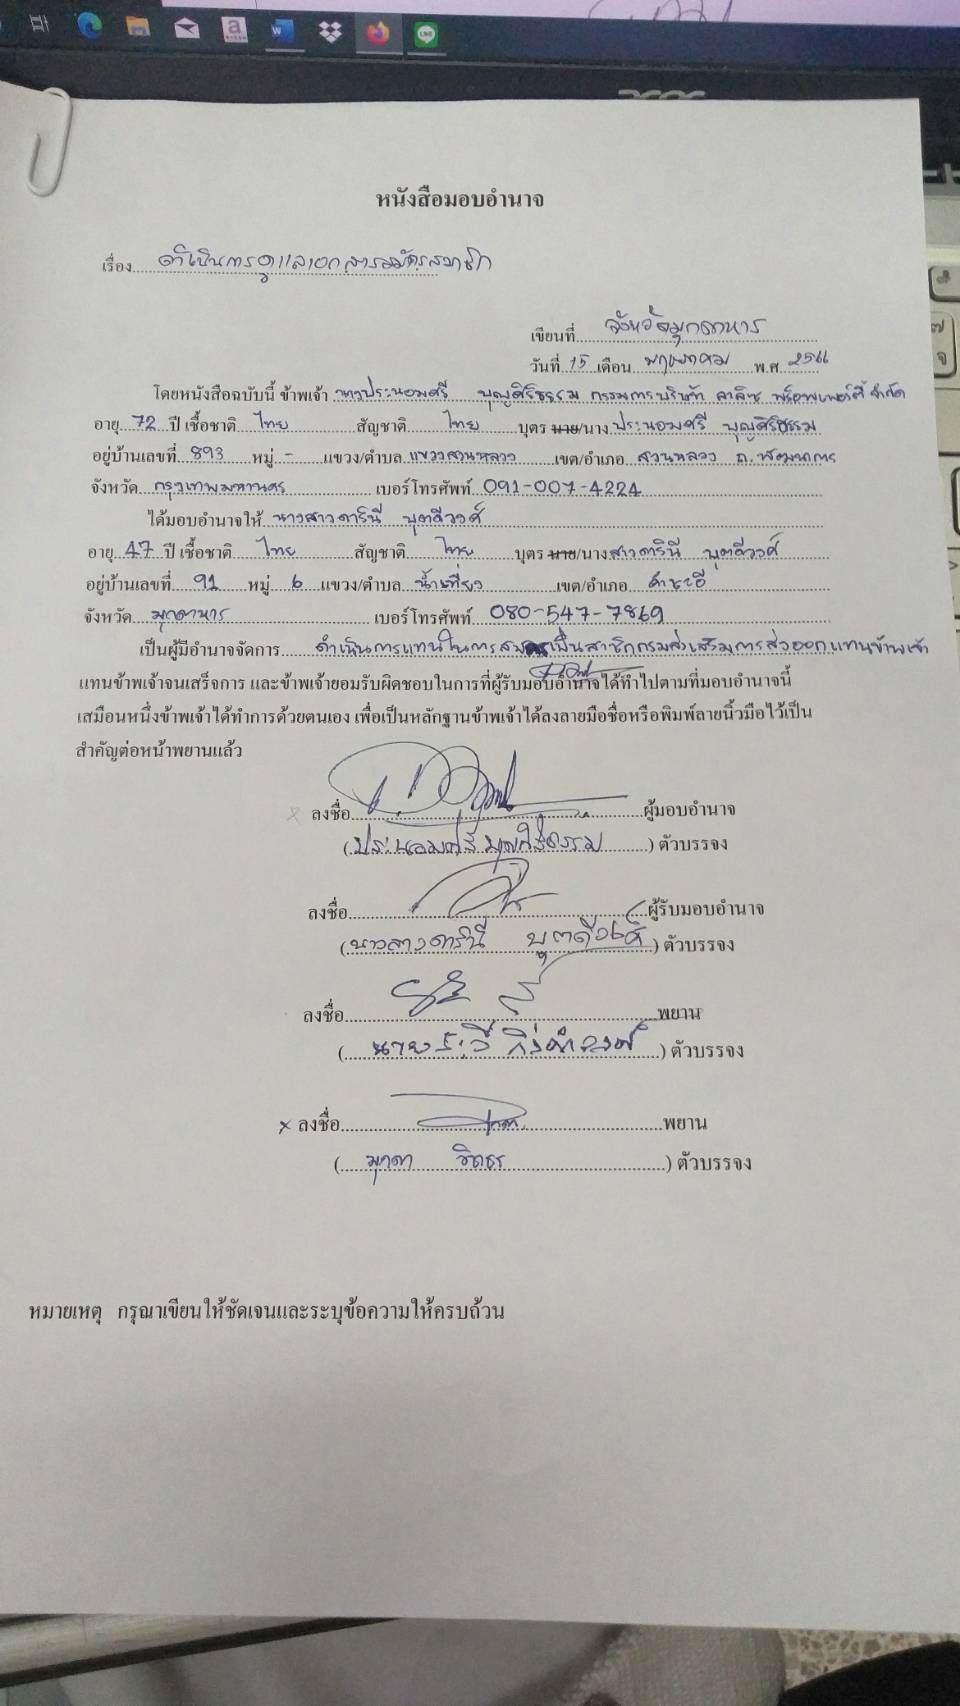 หนังสือมอบอำนาจ
เรื่อง ดำเนินการดูแลเอกสารสมัครสมาชิก
เขียนที่ จังหวัดมุกดาหาร
วันที่ 15 เดือน พฤษภาคม พ.ศ. 2566
โดยหนังสือฉบับนี้ ข้าพเจ้า นางประนอมศรี บุญศิริธรรม กรรมการบริษัท ลาลิซ พร็อพเพอร์ตี้ จำกัด
อายุ 72 ปี เชื้อชาติ ไทย สัญชาติ ไทย บุตร นาย/นาง ประนอมศรี บุญศิริธรรม
อยู่บ้านเลขที่ 893 หมู่ - แขวง/ตำบล แขวงสวนหลวง เขต/อำเภอ สวนหลวง ถ.พัฒนาการ
จังหวัด กรุงเทพมหานคร เบอร์โทรศัพท์ 091-007-4224
ได้มอบอำนาจให้ นางสาวดารินี พุตดีวงค์
อายุ 47 ปี เชื้อชาติ ไทย สัญชาติ ไทย บุตร นาย/นางสาวดารินี พุตดีวงศ์
อยู่บ้านเลขที่ 91 หมู่ 6 แขวง/ตำบล น้ำเที่ยง เขต/อำเภอ คำชะอี
จังหวัด มุกดาหาร เบอร์โทรศัพท์ 080-547-7869
เป็นผู้มีอำนาจจัดการ ดำเนินการแทนในการสมัครเป็นสมาชิกกรมส่งเสริมการส่งออกแทนข้าพเจ้า
แทนข้าพเจ้าจนเสร็จการ และข้าพเจ้ายอมรับผิดชอบในการที่ผู้รับมอบอำนาจได้ทำไปตามที่มอบอำนาจนี้
เสมือนหนึ่งข้าพเจ้าได้ทำการด้วยตนเอง เพื่อเป็นหลักฐานข้าพเจ้าได้ลงลายมือชื่อหรือพิมพ์ลายนิ้วมือไว้เป็น
สำคัญต่อหน้าพยานแล้ว
x ลงชื่อ ผู้มอบอำนาจ
(ประนอมศรี บุญศิริธรรม) ตัวบรรจง
ลงชื่อ ผู้รับมอบอำนาจ
(นางสาวดารินี พุตดีวงค์) ตัวบรรจง
ลงชื่อ พยาน
(นาย) ตัวบรรจง
x ลงชื่อ พยาน
(มุกดา) ตัวบรรจง
หมายเหตุ กรุณาเขียนให้ชัดเจนและระบุข้อความให้ครบถ้วน